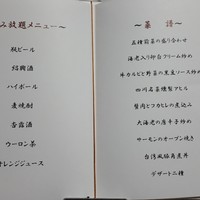 み放題メニュー～
瓶ビール
紹興酒
ハイボール
麦焼酎
杏露酒
ウーロン茶
オレンジジュース
～菜譜～
五種前菜の盛り合わせ
海老入り卵白クリーム炒め
牛カルビと野菜の黒豆ソース炒め
四川名菜燻製アヒル
蟹肉とフカヒレの煮込み
大海老の唐辛子炒め
サーモンのオーブン焼き
台湾風豚角煮丼
デザート二種